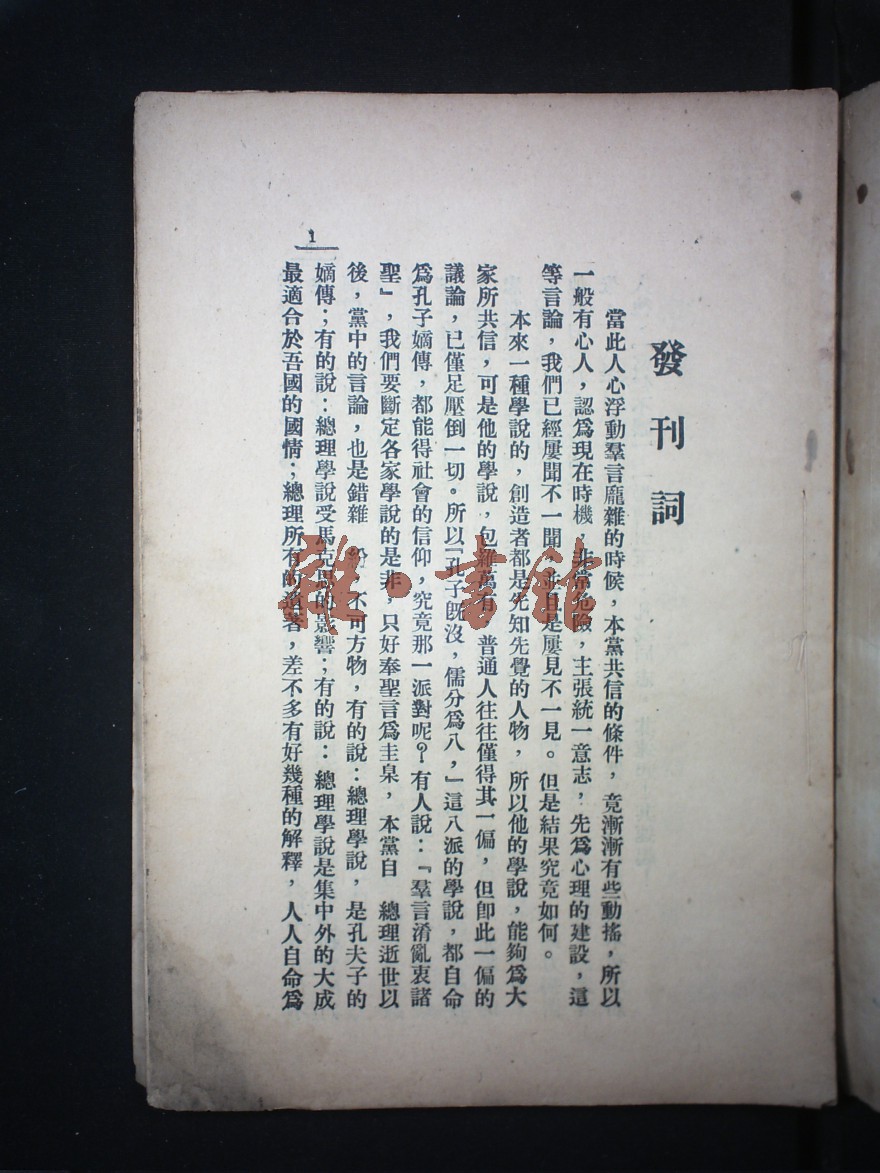 發刊詞
當此人心浮動羣言龐雜的時候，本黨共信的條件，竟漸漸有些動搖，所以
一般有心人，認爲現在時機 非常危險，主張統一意志，先爲心理的建設，這
等言論，我們已經屢聞不一聞，並且是屢見不一見。但是結果究竟如何。
本來一種學說的，創造者都是先知先覺的人物，所以他的學說，能夠爲大
家所共信，可是他的學說，包羅萬有 普通人往往僅得其一偏，但卽此一偏的
議論，已僅足壓倒一切。所以「孔子旣沒，儒分爲八，」這八派的學說，都自命
爲孔子嫡傳，都能得社會的信仰，究竟那一派對呢？有人說：『羣言淆亂衷諸
聖』，我們要斷定各家學說的是非，只好奉聖言爲圭臬，本黨自 總理逝世以
後，黨中的言論，也是錯雜 紛，不可方物，有的說：總理學說，是孔夫子的
嫡傳；有的說：總理學說受馬克思的影響；有的說： 總理學說是集中外的大成
最適合於吾國的國情；總理所有的遺著，差不多有好幾種的解釋，人人自命爲
1
雅·書館